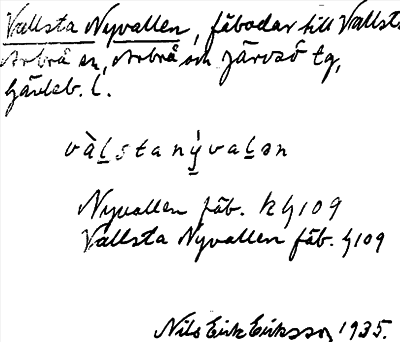 Vallsta Nyvallen, fäbodar till Vallsta
Arbrå sn, Arbrå och Järvsö tg,
Gävleb. l.
vàlstanývalən
Nyvallen fäb. k 4109
Vallsta Nyvallen fäb. 4109
Nils Erik Eriksson 1935.